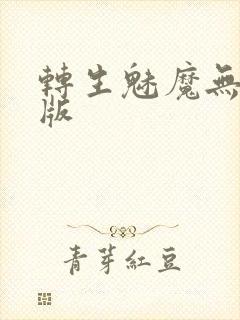 轉生魅魔無
版
青芽紅豆